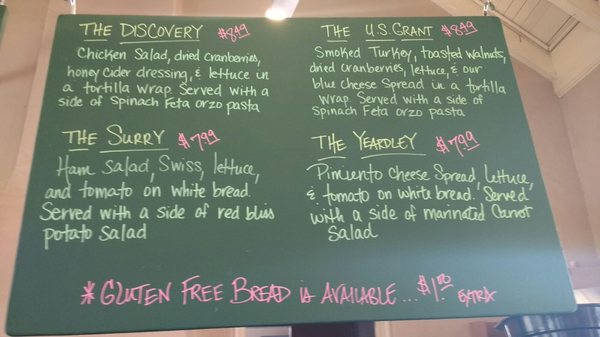 THE DISCOVERY $8.49
Chicken Salad, dried cranberries,
honey cider dressing, & lettuce in
a tortilla wrap. Served with a
side of Spinach Feta orzo pasta
THE SURRY $7.99
Ham Salad, Swiss, lettuce,
and tomato on white bread.
Served with a side of red bliss
potato Salad
THE U.S. GRANT $8.49
Smoked Turkey, toasted walnuts,
dried cranberries, lettuce, & our
blue cheese Spread in a tortilla
wrap. Served with a side of
Spinach Feta orzo pasta
THE YEARDLEY $7.99
Pimento cheese Spread, lettuce,
& tomato on white bread. Served
with a side of marinated Carrot
Salad
* GLUTEN FREE BREAD is AVAILABLE ... $1.00 EXTRA